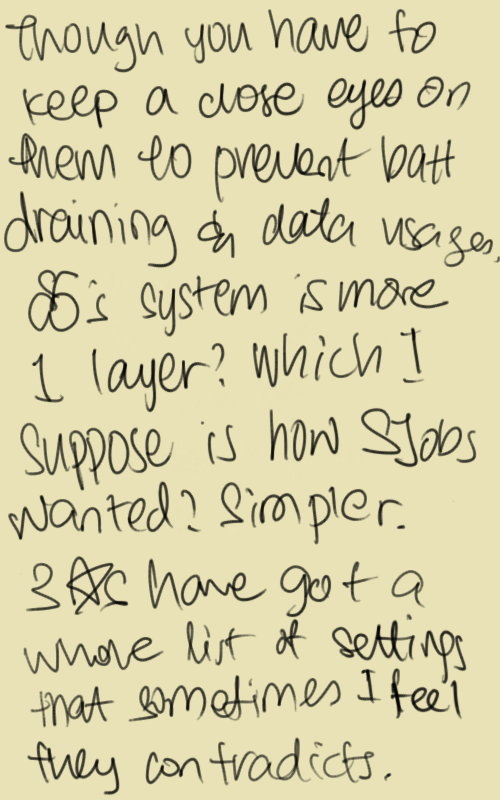 though you have to
keep a close eyes on
them to prevent batt
draining & data usages.
i5's system is more
1 layer? Which I
suppose is how SJobs
wanted? Simpler.
have got a
whole list of settings
that sometimes I feel
they contradicts.